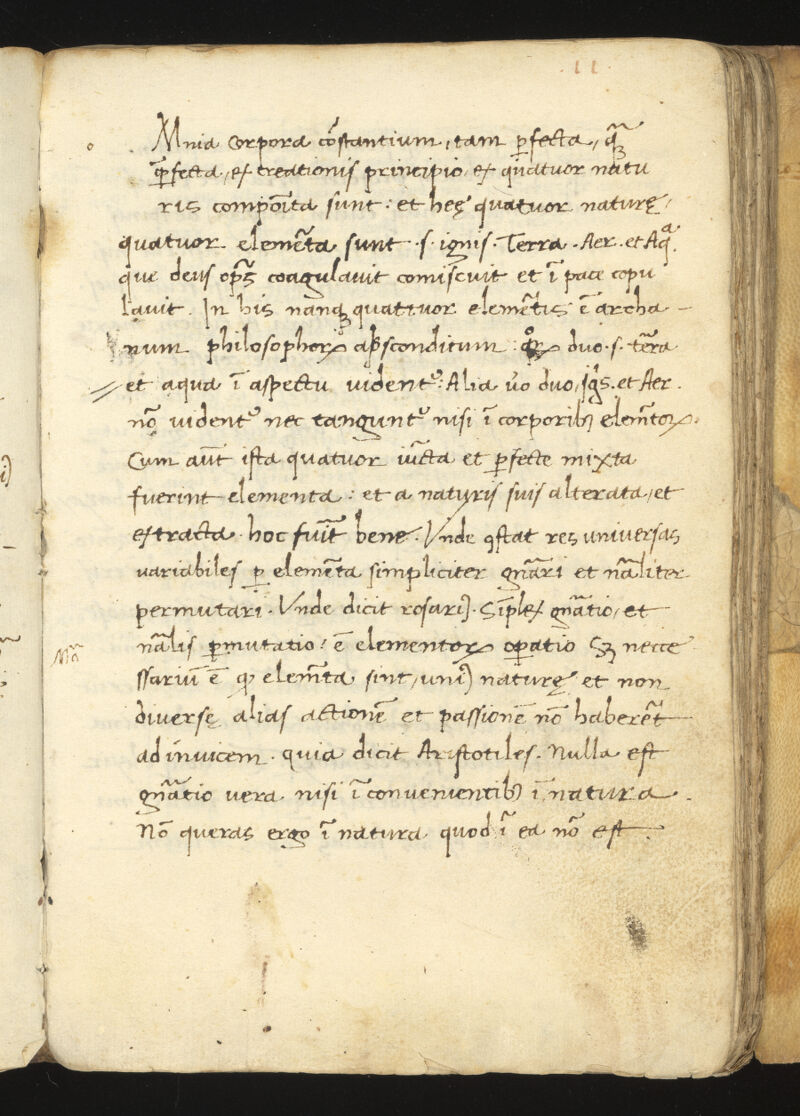 11
o Mnia corpora co᷃stantium, tam ꝑfecta, qᷓꝫ
ꝑfecta, ex creationis principio, ex quatuor natu
ris compoi᷃ta sunt: et heę quatuor naturę,
quatuor eleme᷃ta sunt ·s· ignis. Terra. Aer. et Aqᷓ.
que deus op᷃s coagulavit comiscuit et i᷃ pace copu
lavit. In his nanqꝫ quattuor eleme᷃tis e᷃ archa
num philosophoꝝ abscondituɱ: qꝛ᷃ꝝ duo ·s· te᷃ra
et aqua i᷃ aspectu videntᷣ: Alia vo᷃ duo, Ig᷃s. et Aer.
no᷃ videntᷣ nec tanguntᷣ nisi i᷃ corporibꝫ elem᷃toꝝ.
Cum au᷃t ista quatuor iu᷃cta et ꝑfecte mixta
fuerint elementa: et a naturis suis alterata, et
extracta. hoc fui᷃t bene. Vnde ꝯstat res universas
variabiles ꝑ eleme᷃ta simpliciter gn᷃ari et na᷃liter
permutari. Vnde dicit rosariꝰ. Si᷃plex gn᷃atio, et
na᷃lis ꝑmutatio, e᷃ elementoꝝ oꝑatio Sꝫ necce
ssariu᷃ e᷃ ꝙ elem᷃ta sint, uniꝰ naturę et non
diverse alias actione᷃ et passione᷃ no᷃ habere᷃t
ad invicem. quia dicit Aristotiles. Nulla est
gn᷃atio vera nisi i᷃ convenientibꝫ i᷃ natura.
No᷃ queras ergo i᷃ natura quod i᷃ ea no᷃ est.